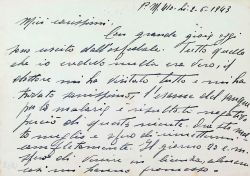 P.M. 410 - Li 2-5-1943
Miei carissimi.
Con grande gioia oggi
sono uscito dall'ospedale. Tutto quello
che io credevo nulla era vero, il
dottore mi ha visitato tutto e mi ha
trovato sanissimo, l'esame del sangue
per la malaria è risultato negativo
più di questo niente,
meglio e spero di rimettermi
completamente. Il giorno 23 c. m.
spero di venire in licenza, almeno
così mi hanno promesso.